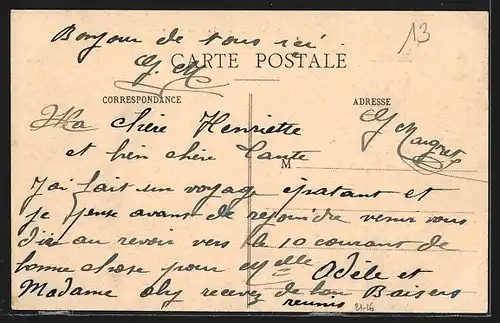 Bonjour de tous ici
G. M
13
CARTE POSTALE
CORRESPONDANCE
ADRESSE
Ma chère Henriette
et bien chère Tante
G Maigret
M
J'ai fait un voyage épatant et
je pense avant de rejoindre venir vous
dire au revoir vers le 10 courant de
bonne chose pour Melle Odèle et
Madame Oby recevez de bon Baisers
reunis
21-16